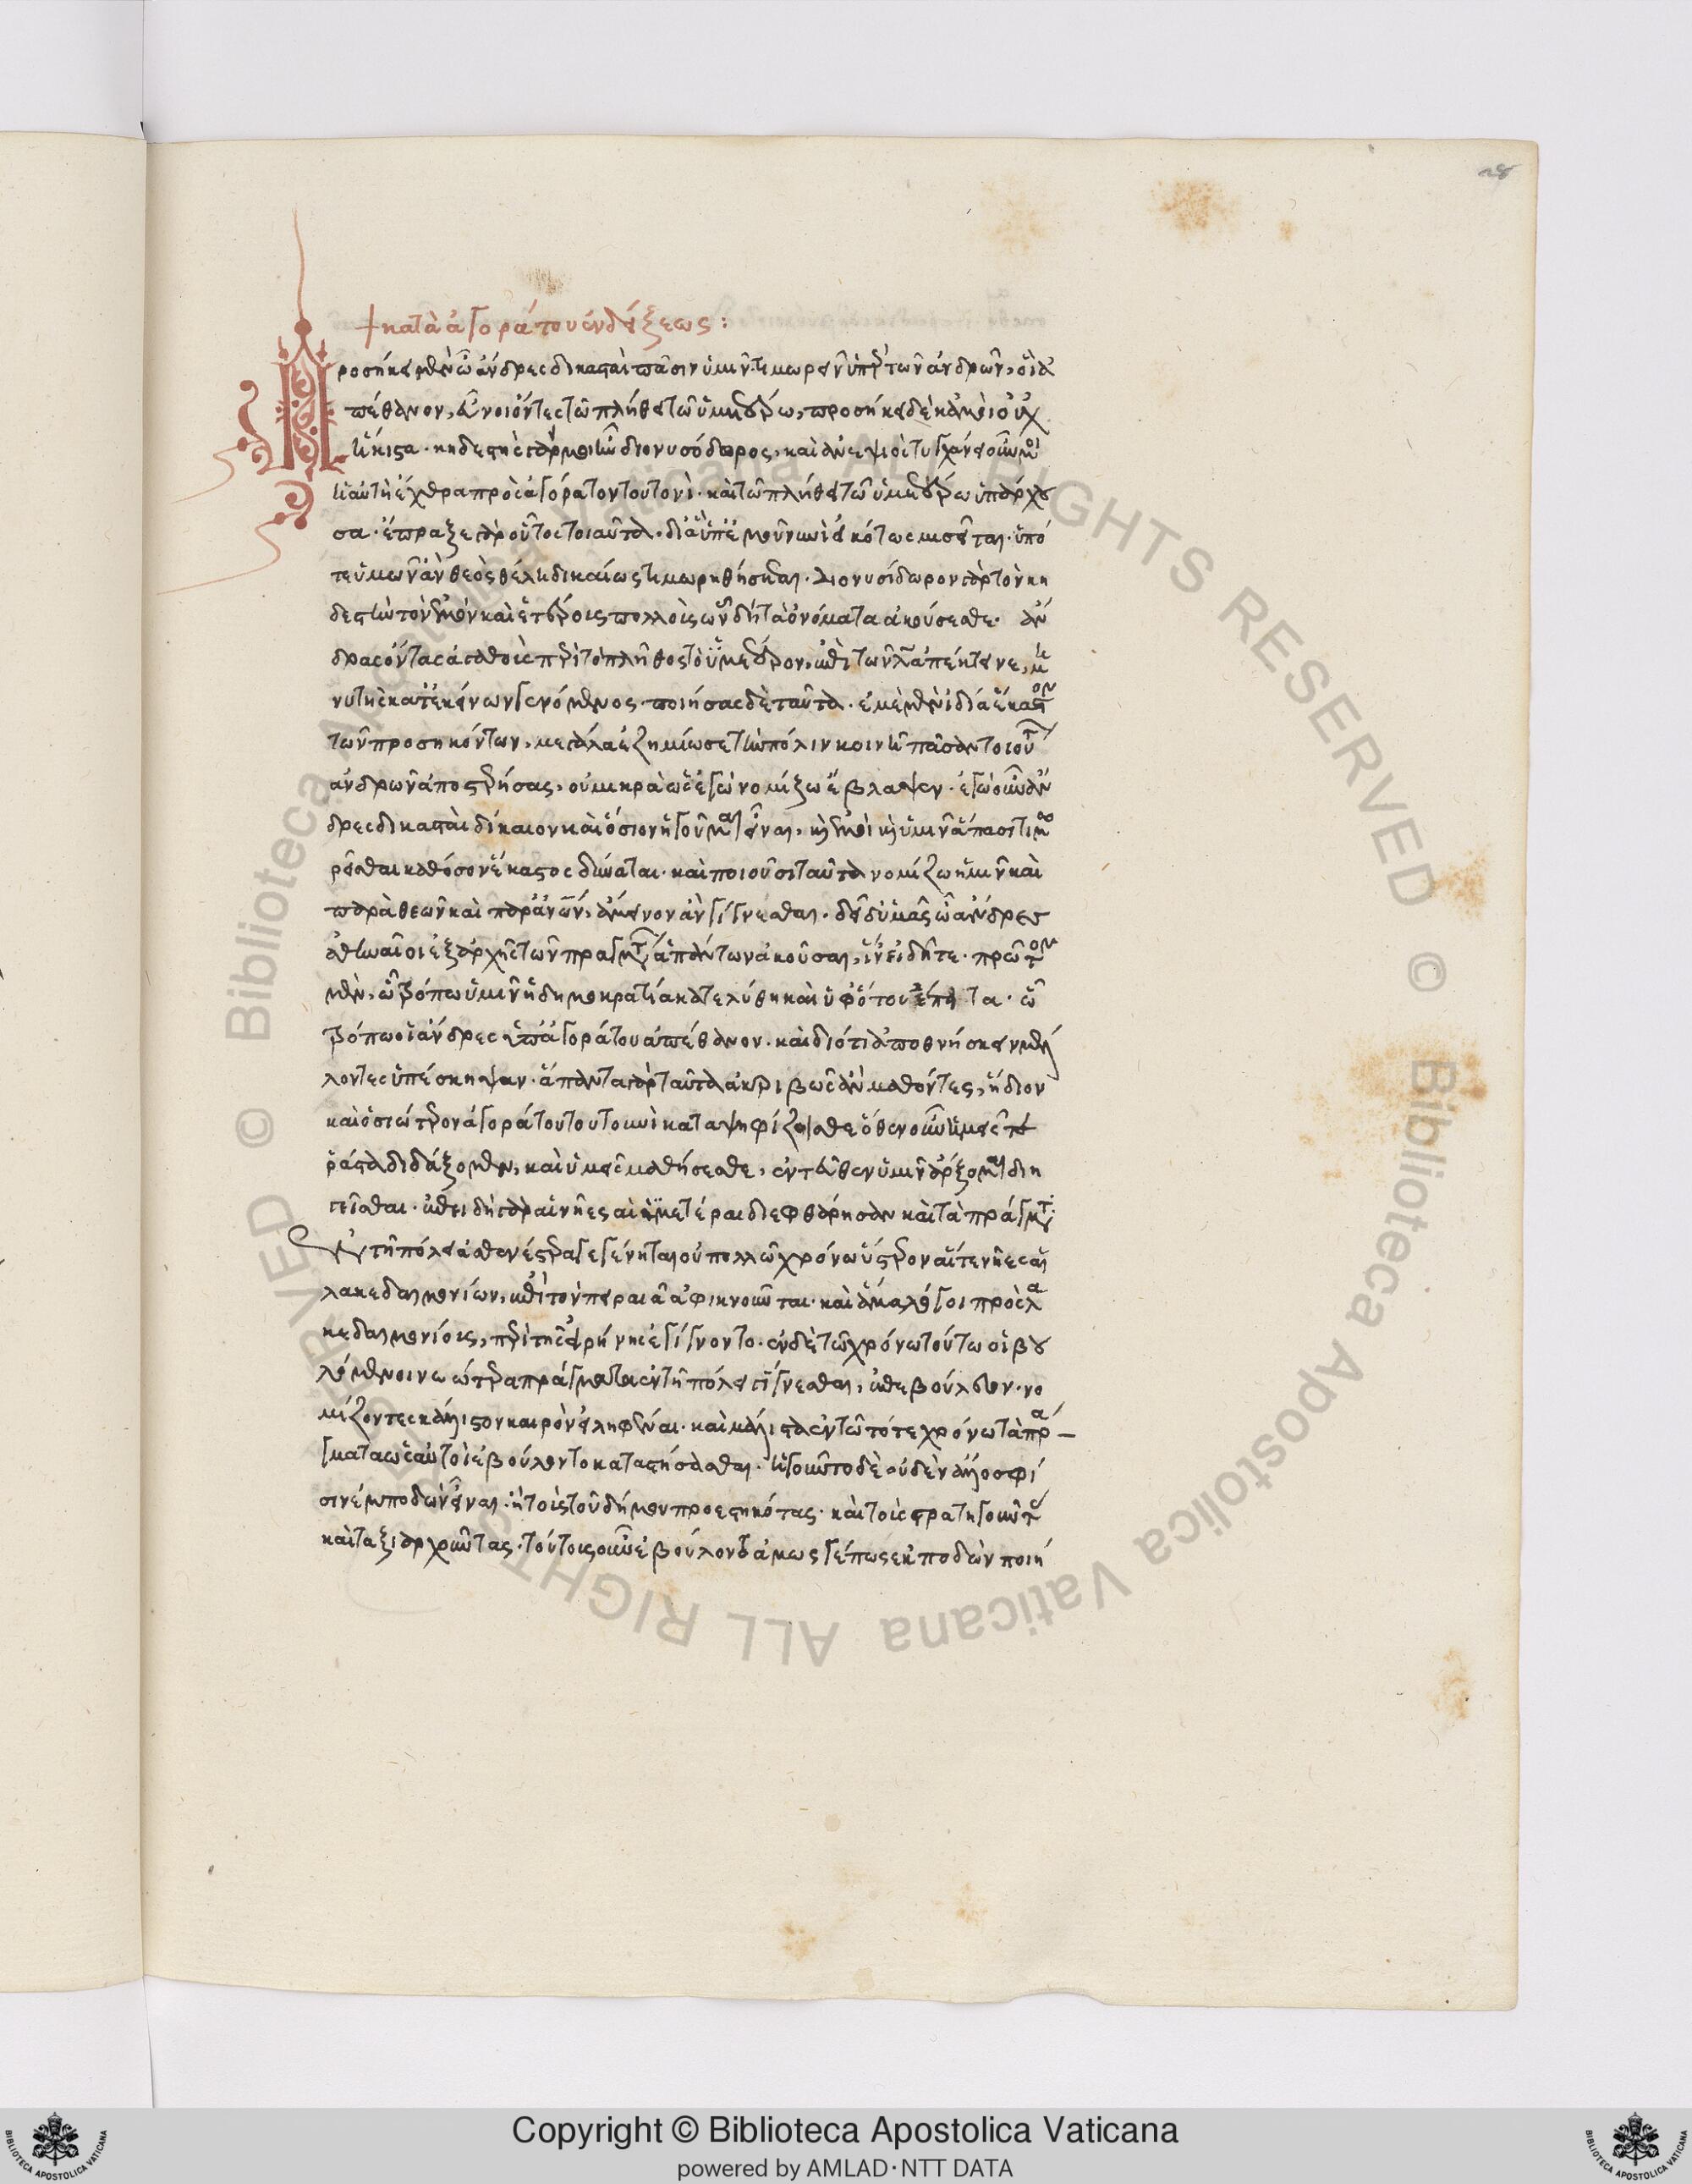 28
κατὰ ἀγοράτου ἐνδείξεως:
Προσήκει μὲν ὦ ἄνδρες δικασταὶ πᾶσιν ὑμῖν τιμωρεῖν ὑπὲρ τῶν ἀνδρῶν, οἳ ἀ
πέθανον, εὖνοι ὄντες τῶ πλήθει τῶ ὑμετέρω, προσήκει δὲ κἀμοὶ οὐχ
ἥκιστα· κηδεστὴς γάρ μοι ἦν διονυσόδωρος, καὶ ἀνεψιὸς τυγχάνει οὖν μοι
ἡ αὐτὴ ἔχθρα πρὸς ἀγόρατον τουτονὶ· καὶ τῶ πλήθει τῶ ὑμετέρω ὑπάρχου
σα· ἔπραξε γὰρ οὗτος τοιαῦτα· δι' ἃ ὑπ' ἐμοῦ νυνὶ εἰκότως μισεῖται· ὑπό
τε ὑμῶν ἂν θεὸς θέλη δικαίως τιμωρηθήσεται. Διονυσόδωρον γὰρ τὸν κη
δεστὴν τὸν ἐμὸν καὶ ἑτέροις πολλοῖς ὧν δὴ τὰ ὀνόματα ἀκούσεσθε· ἄν
δρας ὄντας ἀγαθοὺς περὶ τὸ πλῆθος τὸ ὑμέτερον, ἐπὶ τῶν λα ἀπέκτεινε, μη
νυτὴς κατ' ἐκείνων γενόμενος. ποιήσας δὲ ταῦτα· ἐμὲ μὲν ἰδία ἕκαστον
τῶν προσηκόντων, μεγάλα ἐζημίωσε τὴν πόλιν κοινῇ πᾶσαν τοιούτων
ἀνδρῶν ἀποστερήσας, οὐ μικρὰ ὡς ἐγὼ νομίζω ἔβλαψεν· ἐγὼ οὖν ἄν
δρες δικασταὶ δίκαιον καὶ ὅσιον ἡγοῦμαι εἶναι, καὶ ἐμοὶ καὶ ὑμῖν ἅπασι τιμω
ρεῖσθαι καθόσον ἕκαστος δύναται· καὶ ποιοῦσι ταῦτα νομίζω ἡμῖν καὶ
παρὰ θεῶν καὶ παρ' ἀνων, ἄμεινον ἂν γίγνεσθαι. δεῖ δ' ὑμᾶς ὦ ἄνδρες
ἀθηναῖοι ἐξ ἀρχῆς τῶν πραγμάτων ἁπάντων ἀκοῦσαι, ἵν' εἰδῆτε· πρῶτον
μὲν, ὧ τρόπω ὑμῖν ἡ δημοκρατία κατελύθη καὶ ὑφ' ὅτου ἔπειτα· ὧ
τρόπω οἱ ἄνδρες ὑπ' ἀγοράτου ἀπέθανον· καὶ διότι ἀποθνήσκειν μέλ
λοντες ὑπέσκηψαν· ἅπαντα γὰρ ταῦτα ἀκριβῶς ἂν μαθόντες, ἥδιον
καὶ ὁσιώτερον ἀγοράτου τουτουὶ καταψηφίζοισθε ὅθεν οὖν ἡμεῖς τε
ῥᾶστα διδάξομεν, καὶ ὑμεῖς μαθήσεσθε, ἐντεῦθεν ὑμῖν ἄρξομαι διη
γεῖσθαι· ἐπειδὴ γὰρ αἱ νῆες αἱ ἡμετέραι διεφθάρησαν καὶ τὰ πράγματα
ἐν τῇ πόλει ἀσθενέστερα γεγένηται οὐ πολλῶ χρόνω ὕστερον αἵ τε νῆες αἱ
λακεδαιμονίων, ἐπὶ τὸν πειραιᾶ ἀφικνοῦνται· καὶ ἅμα λόγοι πρὸς λα
κεδαιμονίοις, περὶ τῆς εἰρήνης ἐγίγνοντο. ἐν δὲ τῶ χρόνω τούτω οἱ βου
λόμενοι νεώτερα πράγματα ἐν τῇ πόλει γίγνεσθαι, ἐπεβούλευον· νο
μίζοντες κάλλιστον καιρὸν εἰληφέναι· καὶ μάλιστα ἐν τῶ τότε χρόνω τὰ πρά
γματα ὡς αὐτοὶ ἐβούλοντο καταστήσασθαι. ἡγοῦντο δὲ οὐδὲν ἄλλο σφί
σιν ἐμποδὼν εἶναι· ἢ τοὺς τοῦ δήμου προεστηκότας· καὶ τοὺς στρατηγοῦντας
καὶ ταξιαρχοῦντας· τούτους οὖν ἐβούλοντο ἁμως γέ πως ἐκποδὼν ποιή
Copyright © Biblioteca Apostolica Vaticana
powered by AMLAD·NTT DATA